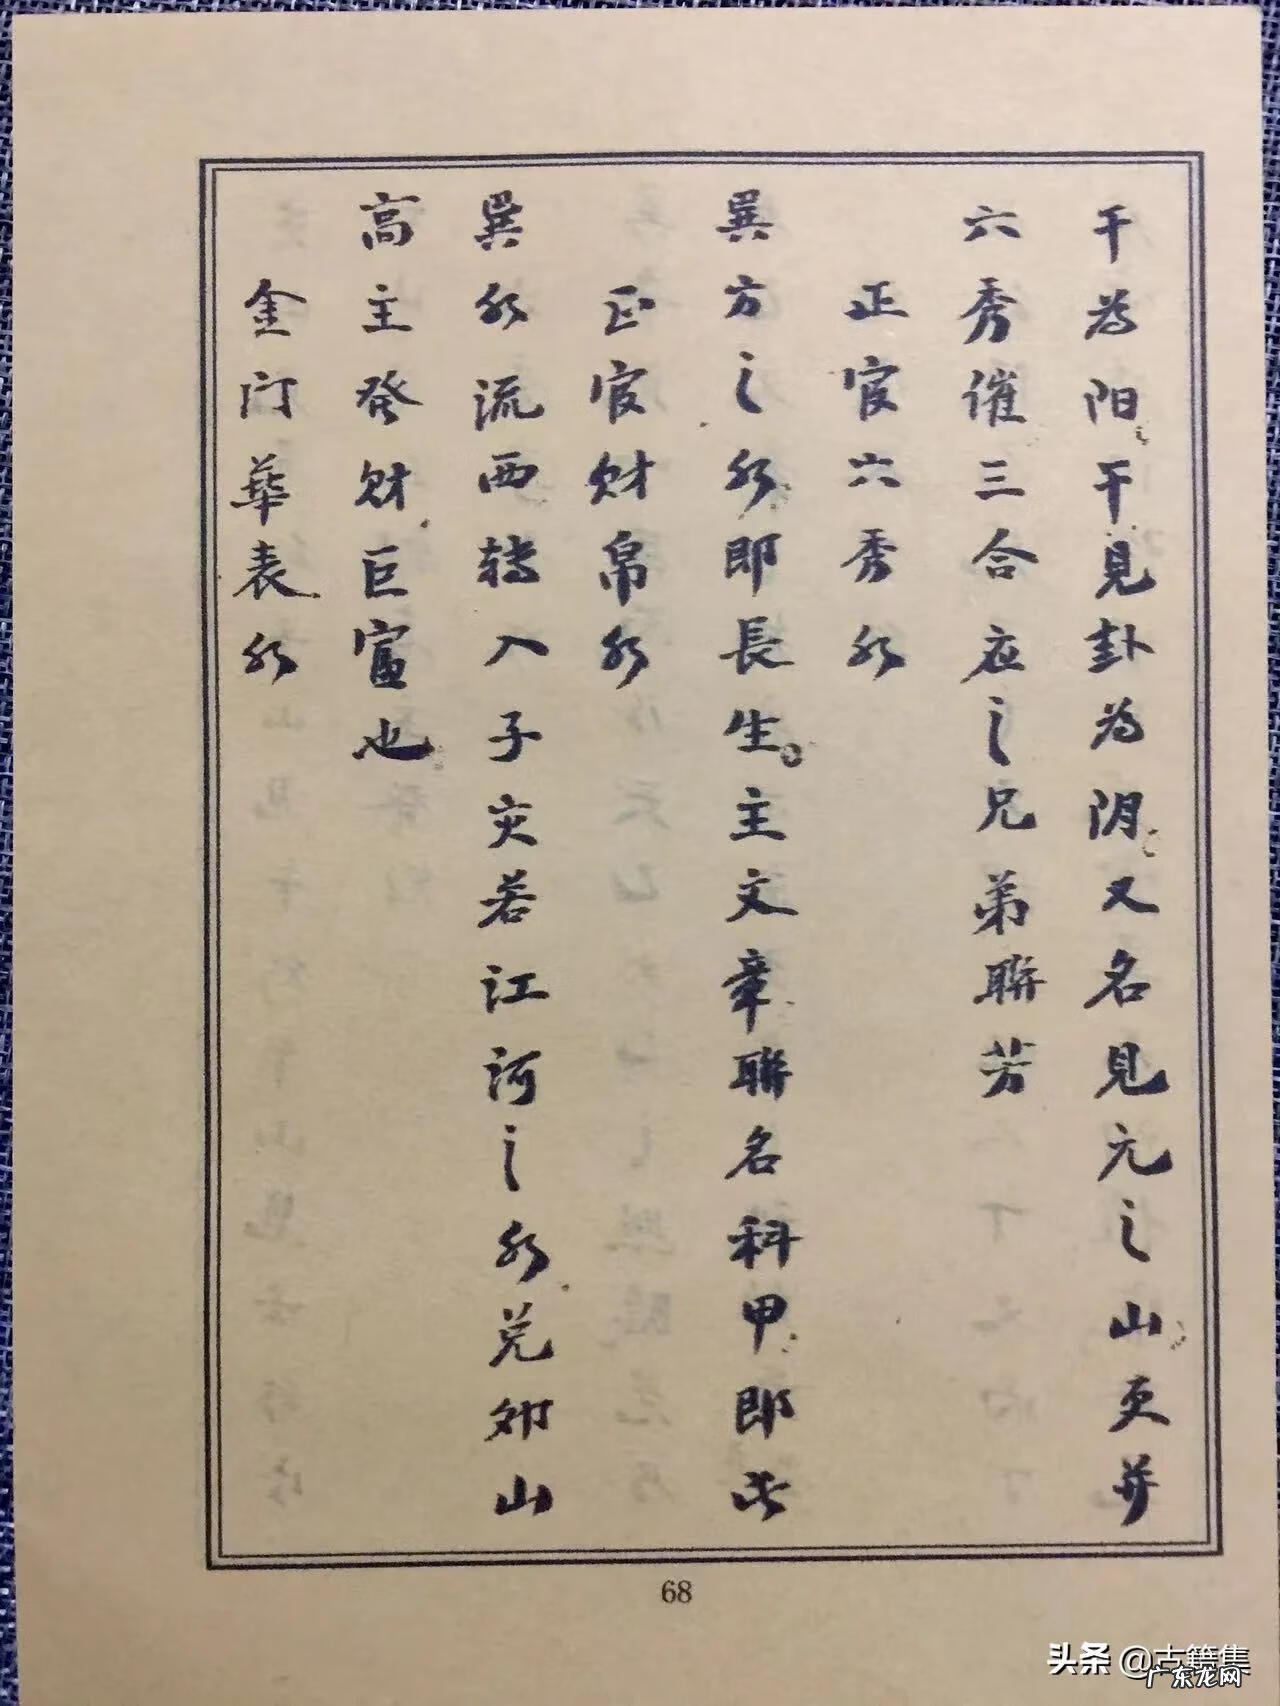 干为阳干見卦为阴又名見元之山更并
六秀催三合应之兄弟聯芳
正官六秀水
巽方之水即長生主文章聯名科甲即此
正官财帛水
巽水流西转入子亥若江河之水兑卯山
高主發财巨富也
金门華表水
68
头条 @古籍集
广东龙网